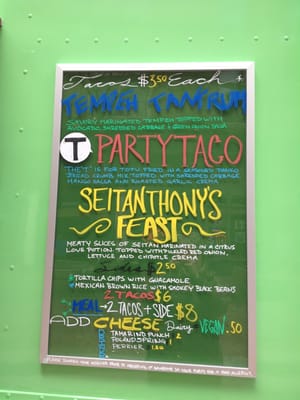 Tacos $3.50 Each
TEMPEH TANTRUM
SAVORY MARINATED TEMPEH TOPPED WITH
AVOCADO, SHREDDED CABBAGE + GREEN ONION SALSA
T PARTY TACO
THE "T" IS FOR TOFU. FRIED IN A SEASONED PANKO
BREAD CRUMB MIX TOPPED WITH SHREDDED CABBAGE
MANGO SALSA AND ROASTED GARLIC CREMA
SEITANTHONY'S
FEAST
MEATY SLICES OF SEITAN MARINATED IN A CITRUS
LOVE POTION. TOPPED WITH PICKLED RED ONION,
LETTUCE AND CHIPOTLE CREMA
Sides $2.50
TORTILLA CHIPS WITH GUACAMOLE
MEXICAN BROWN RICE WITH SMOKEY BLACK BEANS
2 TACOS $6
MEAL → 2 TACOS + SIDE $8
ADD CHEESE Dairy VEGAN .50
TAMARIND PUNCH 2
POLAND SPRING 1
PERRIER 1.50